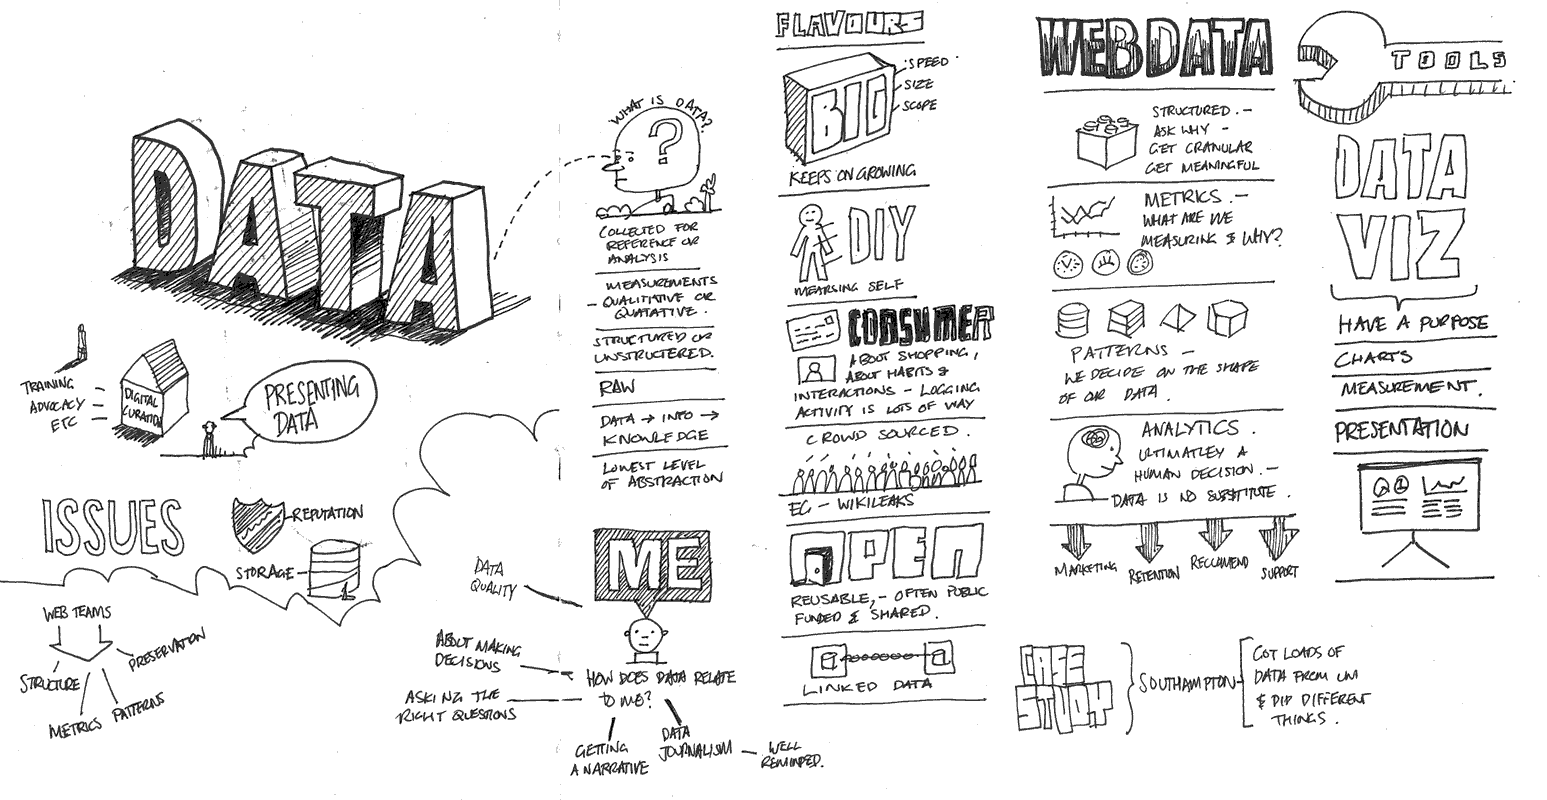 DATA
TRAINING
ADVOCACY
ETC
DIGITAL
CURATION
PRESENTING
DATA
ISSUES
REPUTATION
STORAGE
WEB TEAMS
STRUCTURE
METRICS
PATTERNS
PRESERVATION
WHAT IS DATA?
?
COLLECTED FOR
REFERENCE OR
ANALYSIS
MEASUREMENTS
- QUALITIATIVE OR
QUATATIVE.
STRUCTURED OR
UNSTRUCTERED.
RAW
DATA → INFO →
KNOWLEDGE
LOWEST LEVEL
OF ABSTRACTION
ME
DATA
QUALITY
ABOUT MAKING
DECISIONS
ASKING THE
RIGHT QUESTIONS
HOW DOES DATA RELATE
TO ME?
GETTING
A NARRATIVE
DATA
JOURNALISM
WELL
FLAVOURS
BIG
SPEED
SIZE
SCOPE
KEEPS ON GROWING
DIY
MEARSING SELF
CONSUMER
ABOUT SHOPPING,
ABOUT HABITS &
INTERACTIONS - LOGGING
ACTIVITY IS LOTS OF WAY
CROWD SOURCED.
EG - WIKILEAKS
OPEN
REUSABLE, - OFTEN PUBLIC
FUNDED & SHARED.
LINKED DATA
WEB DATA
STRUCTURED. -
ASK WHY -
GET GRANULAR
GET MEANINGFUL
METRICS. -
WHAT ARE WE
MEASURING & WHY?
PATTERNS -
WE DECIDE ON THE SHAPE
OF OUR DATA.
ANALYTICS.
ULTIMATLEY A
HUMAN DECISION. -
DATA IS NO SUBSTITUTE.
MARKETING
RETENTION
RECCOMEND
SUPPORT
CASE
STUDY
SOUTHAMPTON
GOT LOADS OF
DATA FROM UM
& DID DIFFERENT
THINGS.
TOOLS
DATA
VIZ
HAVE A PURPOSE
CHARTS
MEASUREMENT.
PRESENTATION